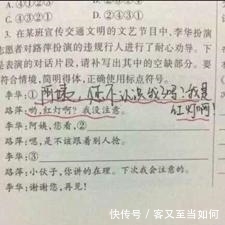 A.④①②③
C.②④③①
D.②④③①
3. 在某班宣传交通文明的文艺节目中,李华扮演
志愿者对路萍扮演的违规行人进行了耐心劝导。下
是表演的对话片段,请补写出其中的空缺部分。要
符合情境,简明得体,正确使用标点符号。
李华:①阿姨,你不认识我吗?我是
红灯啊!
路萍:哟,红灯啊?我没注意。
李华:阿姨,您看,②
路萍:嗯,是不该跟着别人抢。
李华:③
路萍:小伙子,你讲的在理。下次我会注意的。
李华:谢谢您,再见!
快传号 / 客又至当如何